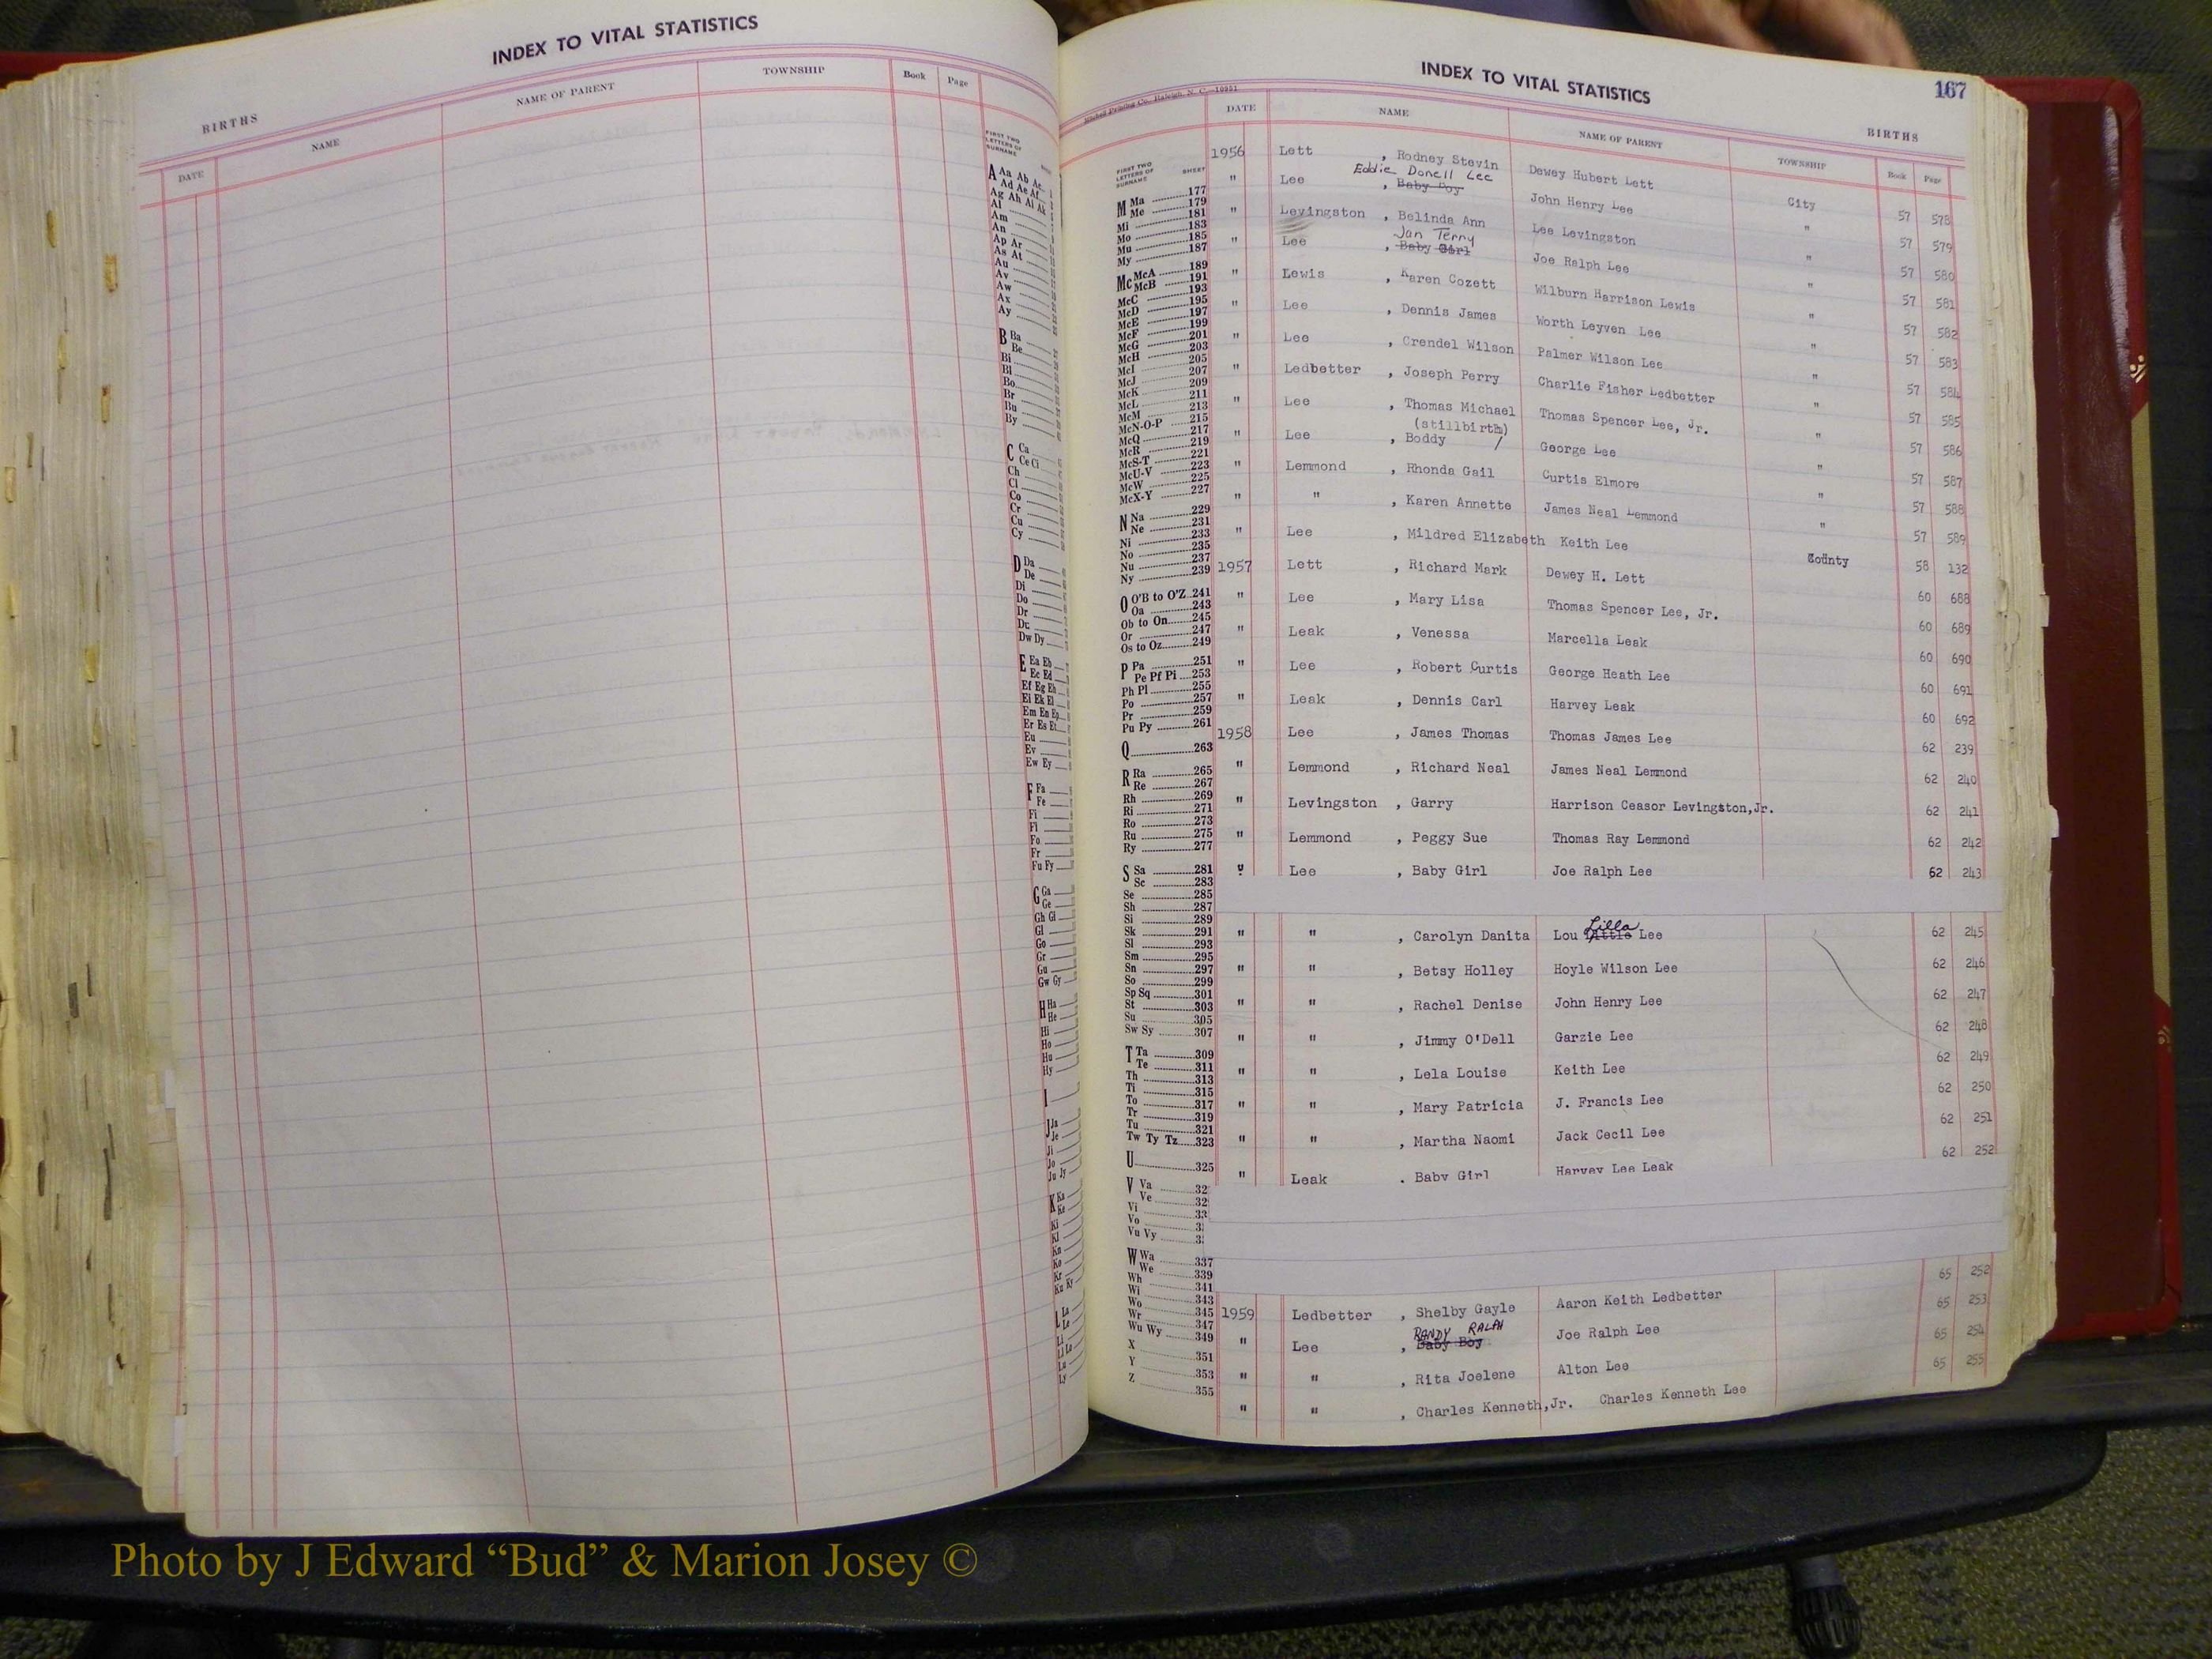 INDEX TO VITAL STATISTICS
BIRTHS
DATE NAME NAME OF PARENT TOWNSHIP Book Page
FIRST TWO
LETTERS OF
SURNAME
A Aa Ab Ac
Ad Ae Af
Ag Ah Ai Ak
Al
Am
An
Ap Ar
As At
Au
Av
Aw
Ax
Ay
B Ba
Be
Bi
Bl
Bo
Br
Bu
By
C Ca
Ce Ci
Ch
Cl
Co
Cr
Cu
Cy
D Da
De
Di
Do
Dr
Du
Dw Dy
E Ea Eb
Ec Ed
Ef Eg Eh
Ei Ek El
Em En Ep
Er Es Et
Eu
Ev
Ew Ey
F Fa
Fe
Fi
Fl
Fo
Fr
Fu Fy
G Ga
Ge
Gh Gi
Gl
Go
Gr
Gu
Gw Gy
H Ha
He
Hi
Ho
Hu
Hy
I
J Ja
Je
Ji
Jo
Ju Jy
K Ka
Ke
Ki
Kl
Kn
Ko
Kr
Ku Ky
L La
Le
Li
Lo
Lu
Ly
INDEX TO VITAL STATISTICS
167
Mitchell Printing Co., Raleigh, N. C.—10951
BIRTHS
DATE NAME NAME OF PARENT TOWNSHIP Book Page
FIRST TWO
LETTERS OF
SURNAME SHEET
M Ma 177
Me 179
Mi 181
Mo 183
Mu 185
My 187
Mc McA 189
McB 191
McC 193
McD 195
McE 197
McF 199
McG 201
McH 203
McI 205
McJ 207
McK 209
McL 211
McM 213
McN-O-P 215
McQ 217
McR 219
McS-T 221
McU-V 223
McW 225
McX-Y 227
N Na 229
Ne 231
Ni 233
No 235
Nu 237
Ny 239
O O'B to O'Z 241
Oa 243
Ob to On 245
Or 247
Os to Oz 249
P Pa 251
Pe Pf Pi 253
Ph Pl 255
Po 257
Pr 259
Pu Py 261
Q 263
R Ra 265
Re 267
Rh 269
Ri 271
Ro 273
Ru 275
Ry 277
S Sa 281
Sc 283
Se 285
Sh 287
Si 289
Sk 291
Sl 293
Sm 295
Sn 297
So 299
Sp Sq 301
St 303
Su 305
Sw Sy 307
T Ta 309
Te 311
Th 313
Ti 315
To 317
Tr 319
Tu 321
Tw Ty Tz 323
U 325
V Va 32
Ve 32
Vi 33
Vo 3
Vu Vy 3
W Wa 337
We 339
Wh 341
Wi 343
Wo 345
Wr 347
Wu Wy 349
X 351
Y 353
Z 355
1956 Lett , Rodney Stevin Dewey Hubert Lett City 57 578
Eddie Donell Lee
" Lee , Baby Boy John Henry Lee " 57 579
" Levingston , Belinda Ann Lee Levingston " 57 580
Jan Terry
" Lee , Baby Girl Joe Ralph Lee " 57 581
" Lewis , Karen Cozett Wilburn Harrison Lewis " 57 582
" Lee , Dennis James Worth Leyven Lee " 57 583
" Lee , Crendel Wilson Palmer Wilson Lee " 57 584
" Ledbetter , Joseph Perry Charlie Fisher Ledbetter " 57 585
" Lee , Thomas Michael Thomas Spencer Lee, Jr. " 57 586
(stillbirth)
" Lee , Boddy / George Lee " 57 587
" Lemmond , Rhonda Gail Curtis Elmore " 57 588
" " , Karen Annette James Neal Lemmond " 57 589
" Lee , Mildred Elizabeth Keith Lee County 58 132
1957 Lett , Richard Mark Dewey H. Lett 60 688
" Lee , Mary Lisa Thomas Spencer Lee, Jr. 60 689
" Leak , Venessa Marcella Leak 60 690
" Lee , Robert Curtis George Heath Lee 60 691
" Leak , Dennis Carl Harvey Leak 60 692
1958 Lee , James Thomas Thomas James Lee 62 239
" Lemmond , Richard Neal James Neal Lemmond 62 240
" Levingston , Garry Harrison Ceasor Levingston,Jr. 62 241
" Lemmond , Peggy Sue Thomas Ray Lemmond 62 242
" Lee , Baby Girl Joe Ralph Lee 62 243
Lilla
" " , Carolyn Danita Lou Lee 62 245
" " , Betsy Holley Hoyle Wilson Lee 62 246
" " , Rachel Denise John Henry Lee 62 247
" " , Jimmy O'Dell Garzie Lee 62 248
" " , Lela Louise Keith Lee 62 249
" " , Mary Patricia J. Francis Lee 62 250
" " , Martha Naomi Jack Cecil Lee 62 251
" Leak , Baby Girl Harvey Lee Leak 62 252
1959 Ledbetter , Shelby Gayle Aaron Keith Ledbetter 65 252
RANDY RALPH
" Lee , Baby Boy Joe Ralph Lee 65 253
" " , Rita Joelene Alton Lee 65 254
" " , Charles Kenneth,Jr. Charles Kenneth Lee 65 255
Photo by J Edward “Bud” & Marion Josey ©